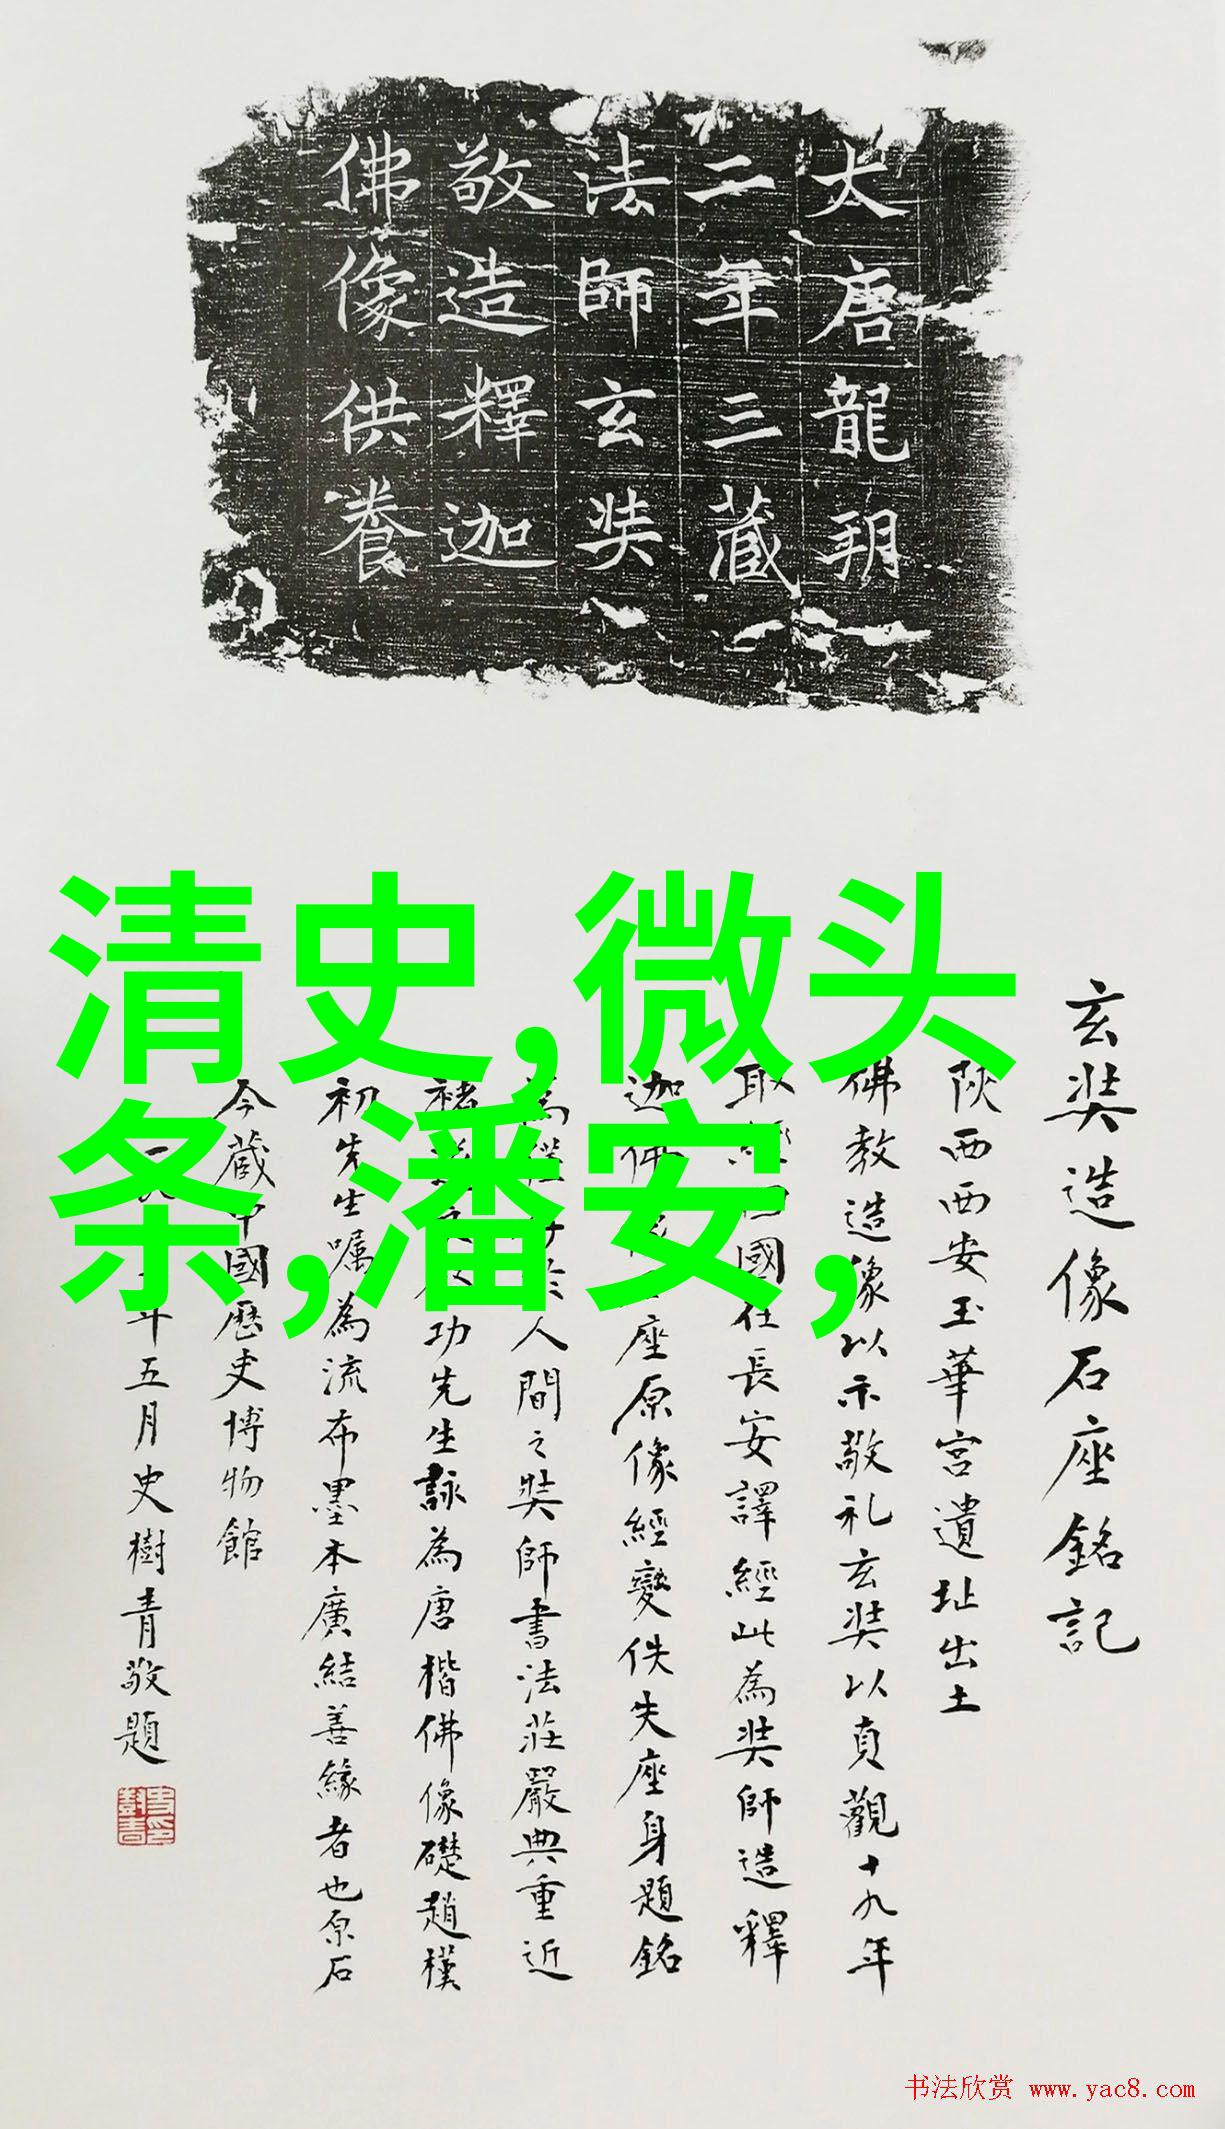 大唐龍朔
二年三藏
法師玄奘
敬造釋迦
佛像供養
清史,微头
条,潘安,
玄奘造像石座銘記
陝西西安玉華宮遺址出土
佛教造像以示敬礼玄奘以貞觀十九年
取經回國在長安譯經此為奘師造釋
迦佛像座原像經變佚失座身題銘
人間之奘師書法莊嚴典重近
褚功先生詠為唐楷佛像礎趙樸
初先生囑為流布墨本廣結善緣者也原石
今蔵中國歷史博物館
一年五月史樹青敬題
书法欣赏 www.yac8.com